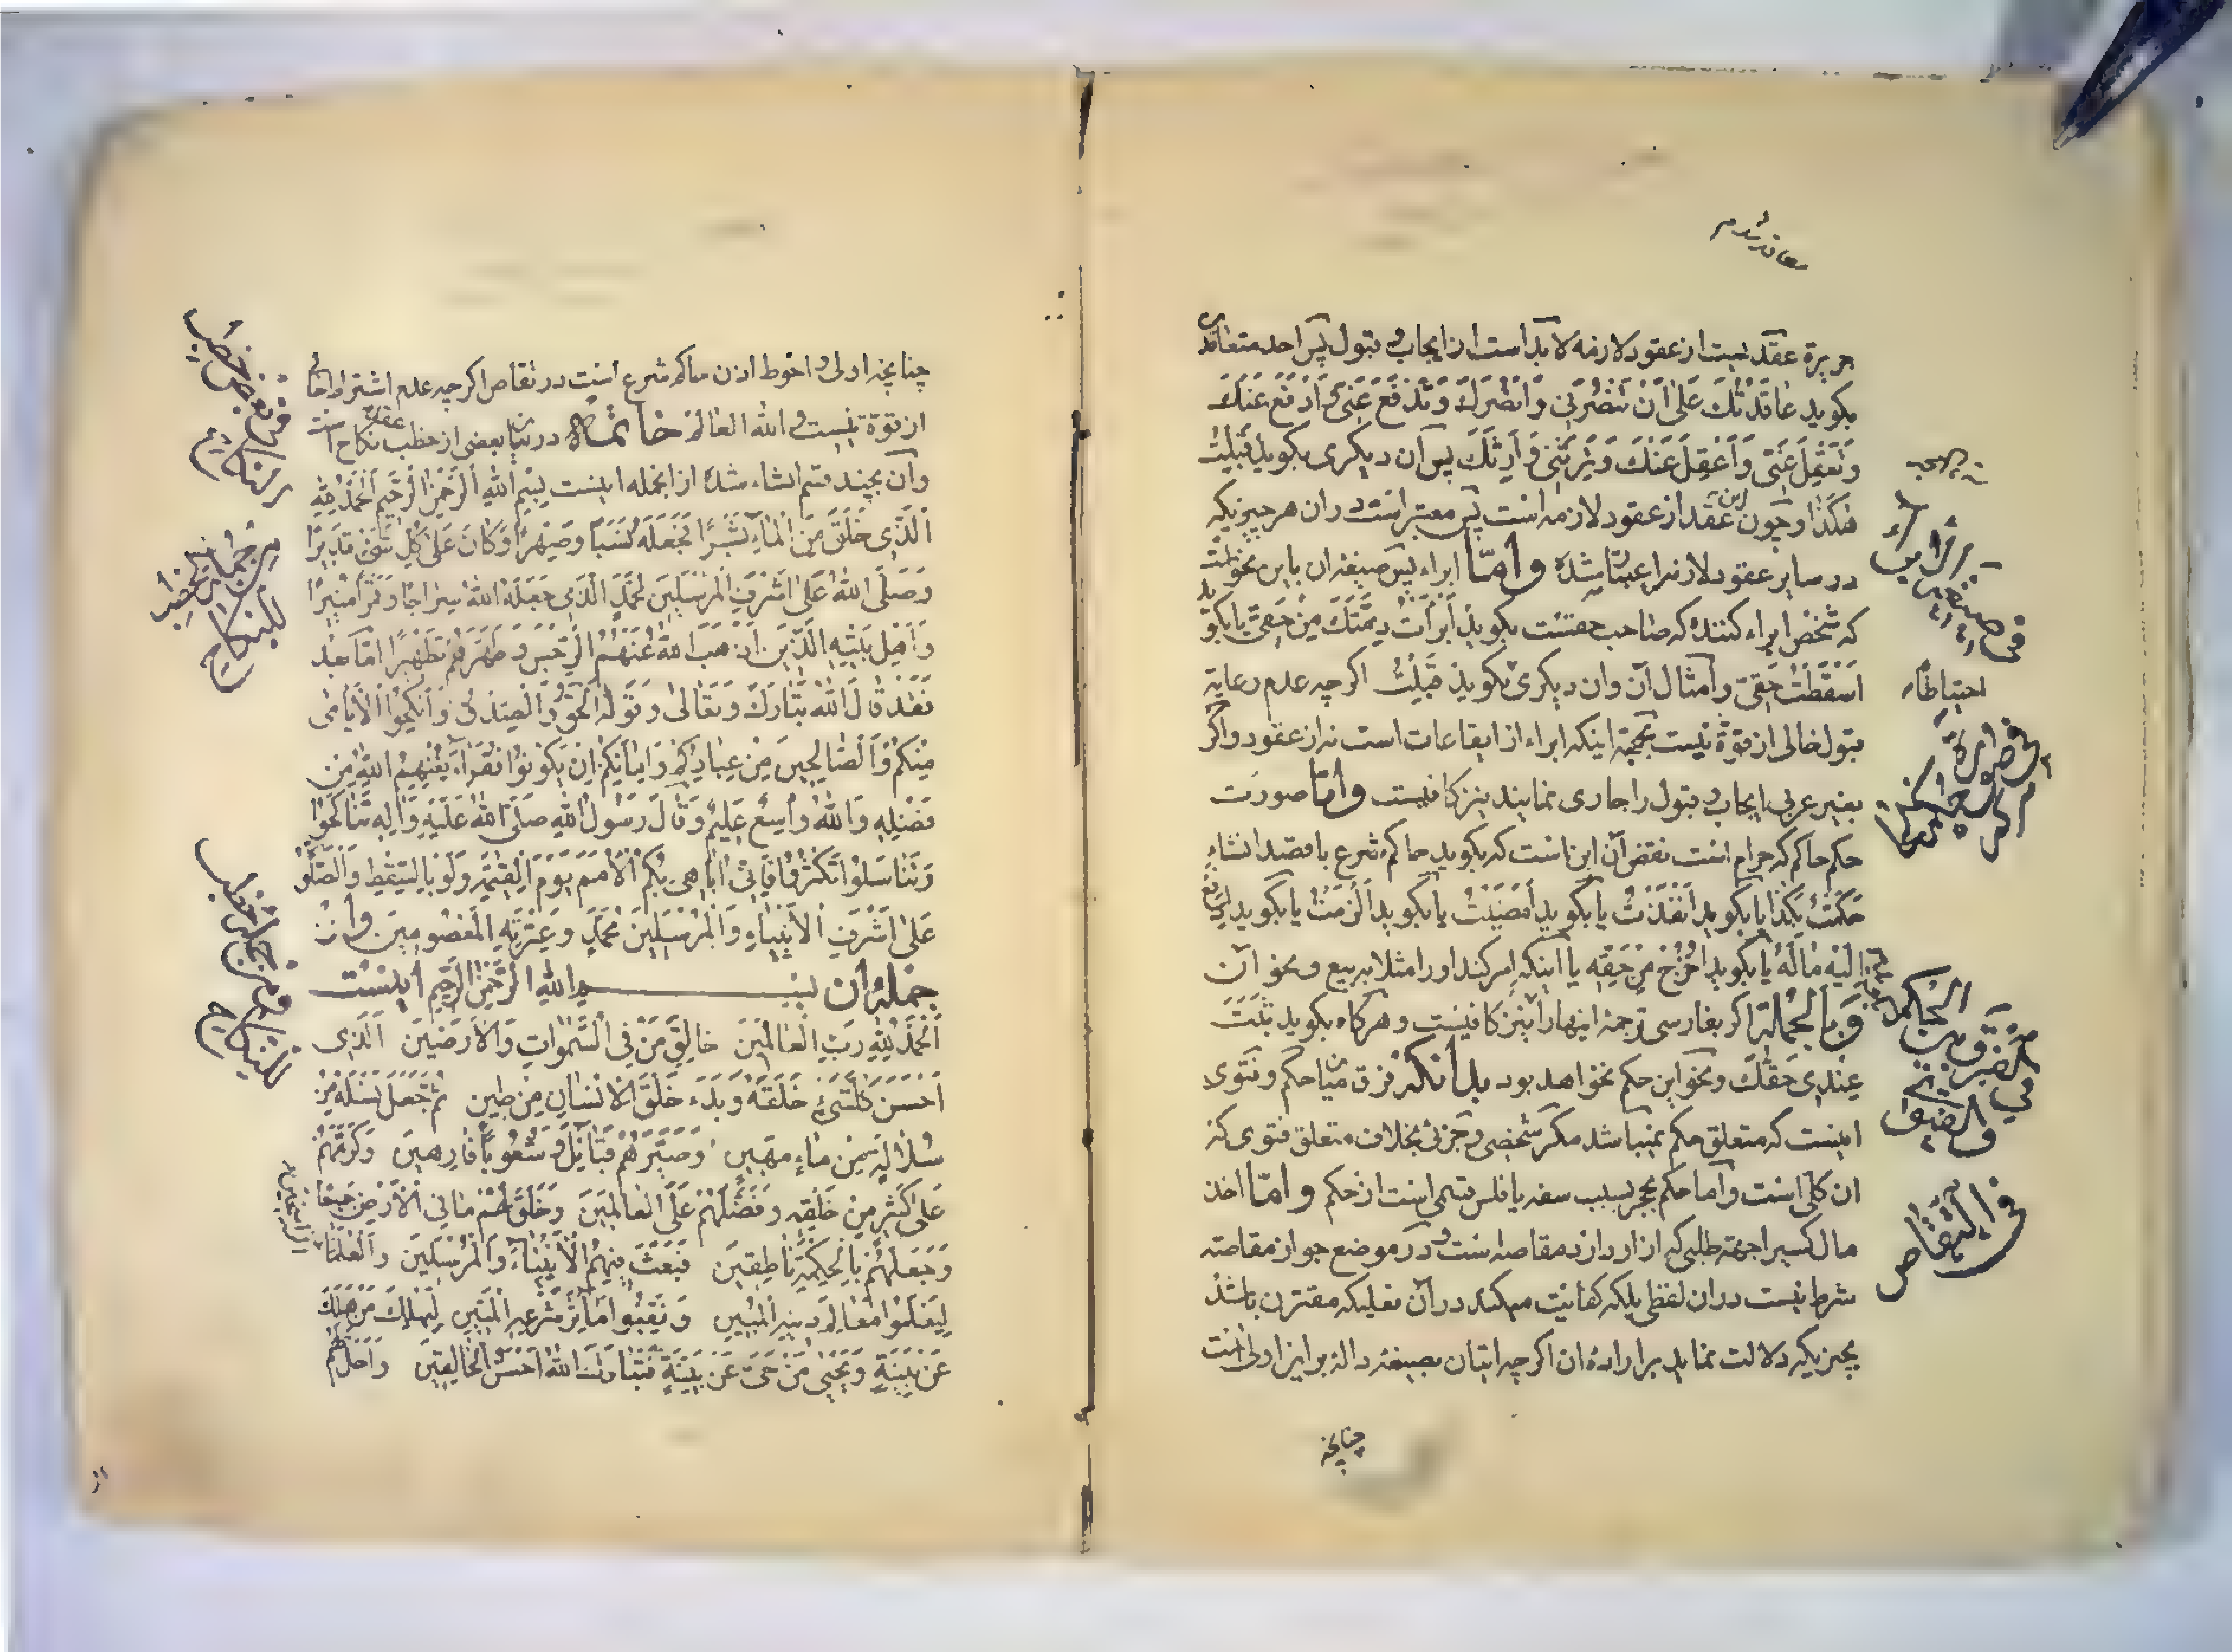 جریره عقد یست از عقود لازمه لابد است از ایجاب و قبول پس احد متعاقدین
بکوید عاقَدْتُكَ عَلیٰ اَنْ تَنْصُرَنی وَاَنْصُرَكَ وَتَدْفَعَ عَنّی وَ اَدْفَعَ عَنْكَ
وَتَعْقِلَ عَنّی وَاَعْقِلَ عَنْكَ وَتَرِثَنی وَاَرِثَكَ پس آن دیکری بکوید قَبِلْتُ
هٰكَذا و چون این عقد از عقود لازمه است پس معتبر است در ان هر چیزیکه
در سایر عقود لازمه اعتبار شده واما ابراء پس صیغه ان باین نحو است
که شخص ابراء کننده که صاحب حقست بکوید اَبْرَأْتُ ذِمَّتَكَ مِنْ حَقّی یا بکوید
اَسْقَطْتُ حَقّی وامثال آن وان دیکری بکوید قَبِلْتُ اکرچه عدم رعایة
قبول خالی از قوة نیست بجهة اینکه ابراء از ایقاعات است نه از عقود واکر
بغیر عربی ایجاب و قبول را جاری نمایند نیز کافیست واما صورت
حکم حاکم که حرام است نقض آن این است که بکوید حاکم شرع با قصد انشاء
حَكَمْتُ بِكَذا یا بکوید اَنْفَذْتُ یا بکوید اَمْضَیْتُ یا بکوید اَلْزَمْتُ یا بکوید اِدْفَعْ
اِلَیْهِ مالَهُ یا بکوید اُخْرُجْ مِنْ حَقِّهِ یا اینکه امر کند او را مثلا به بیع و نحو آن
وبالجملة اکر بفارسی ترجمه اینها را نیز کافیست و هرکاه بکوید ثَبَتَ
عِنْدی حَقُّكَ و نحو این حکم نخواهد بود بدانکه فرق میان حکم و فتوی
اینست که متعلق حکم نمیباشد مکر شخصی و جزئی بخلاف متعلق فتوی که
ان کلی است واما حکم بحجر بسبب سفه یا فلس قسمی است از حکم واما اخذ
مال کسی را جهة طلبی که از او دارد مقاصه است و در موضع جواز مقاصه
شرط نیست در ان لفظی بلکه کفایت میکند در آن فعلیکه مقترن باشد
بچیزیکه دلالت نماید بر اراده ان اکرچه اتیان بصیغه داله بر این اولی است
چنانچه
احتیاطًا
فی صیغة الابراء
فی صورة حکم الحاکم
فی الفرق بین الحکم والفتوی
فی التقاص
چنانچه اولی و احوط اذن حاکم شرع است در تقاص اکرچه عدم اشتراط خالی
از قوة نیست والله العالم خاتمة در بیان بعضی از خطب عقد نکاح است
وآن بچند قسم انشاء شده از انجمله اینست بِسْمِ اللهِ الرَّحْمٰنِ الرَّحیمِ اَلْحَمْدُ لِلّٰهِ
الَّذی خَلَقَ مِنَ الْمآءِ بَشَرًا فَجَعَلَهُ نَسَبًا وَصِهْرًا وَكانَ عَلیٰ كُلِّ شَیْءٍ قَدیرًا
وَصَلَّی اللهُ عَلیٰ اَشْرَفِ الْمُرْسَلینَ مُحَمَّدٍ الَّذی جَعَلَهُ اللهُ سِراجًا وَقَمَرًا مُنیرًا
وَاَهْلِ بَیْتِهِ الَّذینَ اَذْهَبَ اللهُ عَنْهُمُ الرِّجْسَ وَطَهَّرَهُمْ تَطْهیرًا اَمّا بَعْدُ
فَقَدْ قالَ اللهُ تَبارَكَ وَتَعالیٰ وَقَوْلُهُ الْحَقُّ وَالصِّدْقُ وَاَنْكِحُوا الْاَیامیٰ
مِنْكُمْ وَالصّالِحینَ مِنْ عِبادِكُمْ وَاِمائِكُمْ اِنْ یَكُونُوا فُقَرآءَ یُغْنِهِمُ اللهُ مِنْ
فَضْلِهِ وَاللهُ واسِعٌ عَلیمٌ وَقالَ رَسُولُ اللهِ صَلَّی اللهُ عَلَیْهِ وَاٰلِهِ تَناكَحُوا
وَتَناسَلُوا تَكْثُرُوا فَاِنّی اُباهی بِكُمُ الْاُمَمَ یَوْمَ الْقِیٰمَةِ وَلَوْ بِالسِّقْطِ وَالصَّلٰوةُ
عَلیٰ اَشْرَفِ الْاَنْبِیاءِ وَالْمُرْسَلینَ مُحَمَّدٍ وَعِتْرَتِهِ الْمَعْصُومینَ واز
جمله ان بسم الله الرحمن الرحیم اینست
اَلْحَمْدُ لِلّٰهِ رَبِّ الْعالَمینَ خالِقِ مَنْ فِی السَّمٰواتِ وَالْاَرَضینَ اَلَّذی
اَحْسَنَ كُلَّ شَیْءٍ خَلَقَهُ وَبَدَءَ خَلْقَ الْاِنْسانِ مِنْ طینٍ ثُمَّ جَعَلَ نَسْلَهُ مِنْ
سُلالَةٍ مِنْ ماءٍ مَهینٍ وَصَیَّرَهُمْ قَبائِلَ وَشُعُوبًا فارِهینَ وَكَرَّمَهُمْ
عَلیٰ كَثیرٍ مِنْ خَلْقِهِ وَفَضَّلَهُمْ عَلَی الْعالَمینَ وَخَلَقَ لَهُمْ ما فِی الْاَرْضِ جَمیعًا
وَجَعَلَهُمْ بِالْحِكْمَةِ ناطِقینَ فَبَعَثَ فیهِمُ الْاَنْبِیآءَ وَالْمُرْسَلینَ وَالْعُلَمآءَ
لِیَعْلَمُوا مَعالِمَ دینِهِ الْمُبینِ وَ یَعْقِبُوا مَاٰثِرَ شَرْعِهِ الْمَتینِ لِیَهْلِكَ مَنْ هَلَكَ
عَنْ بَیِّنَةٍ وَیَحْییٰ مَنْ حَیَّ عَنْ بَیِّنَةٍ فَتَبارَكَ اللهُ اَحْسَنُ الْخالِقینَ وَاَحَلَّ لَكُمْ
فی بعض خطب النکاح
من جملة الخطب للنکاح
ومن جملة خطب النکاح